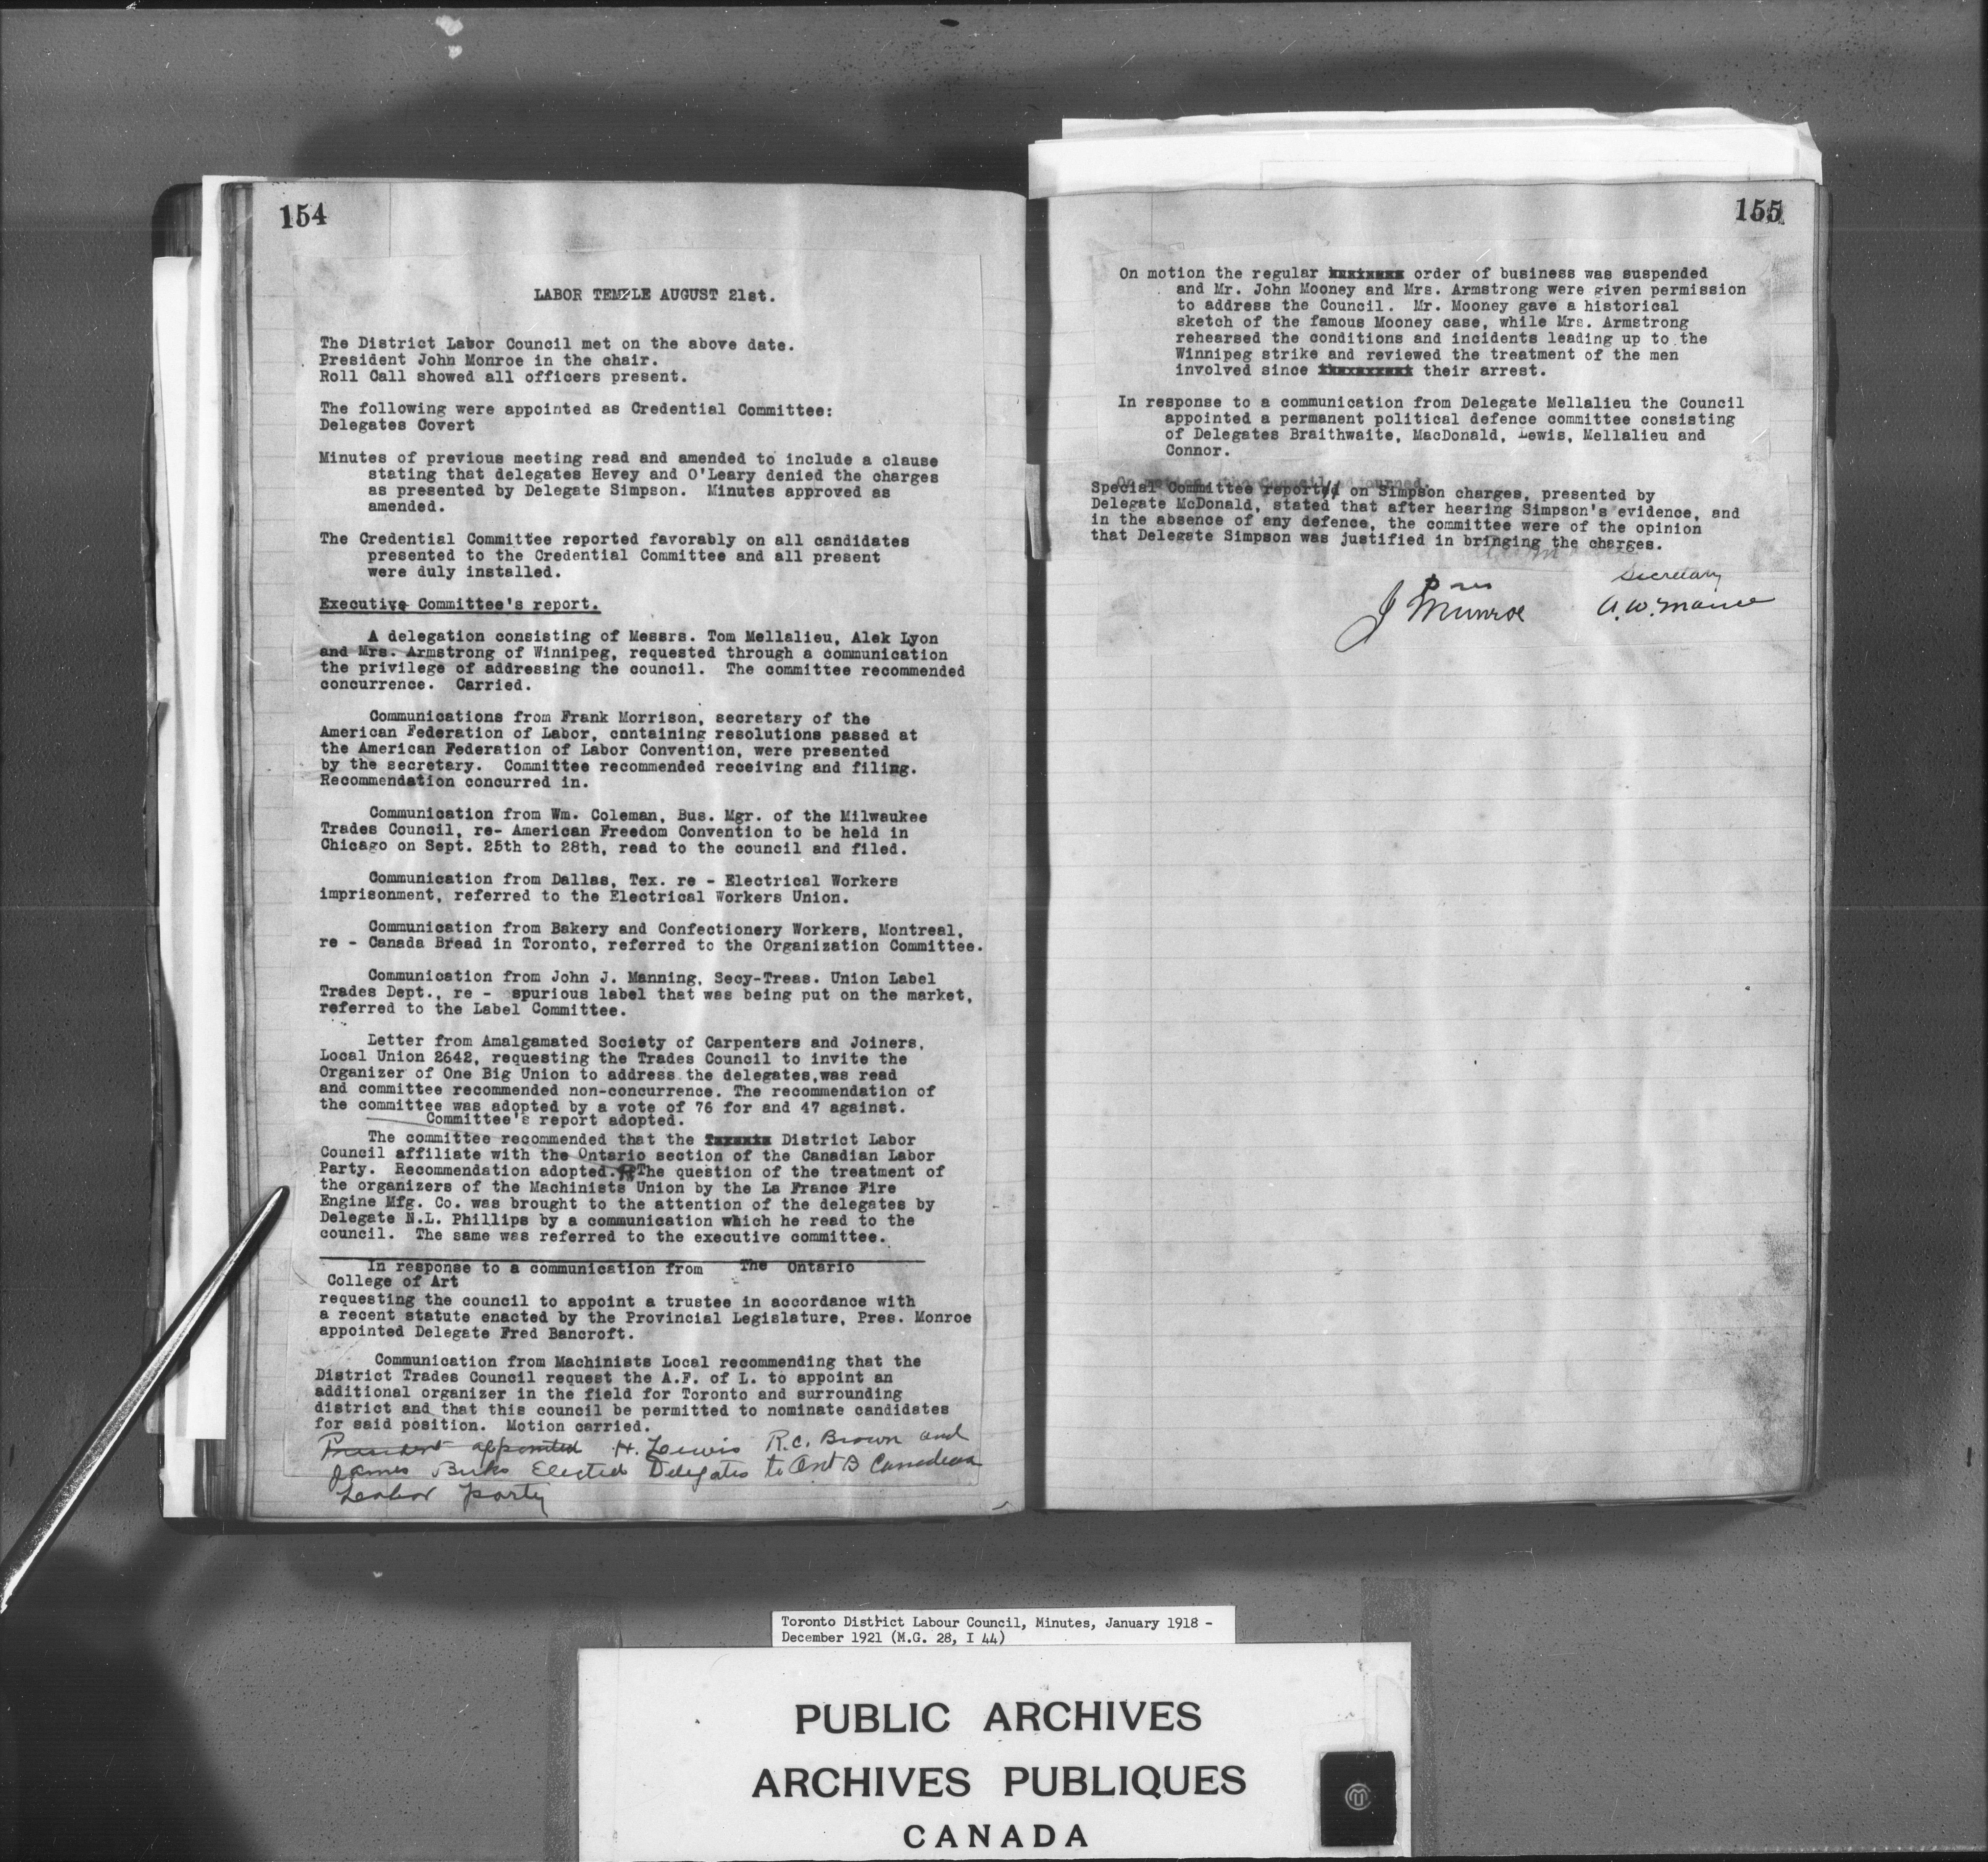 154
LABOR TEMPLE AUGUST 21st.
The District Labor Council met on the above date.
President John Monroe in the chair.
Roll Call showed all officers present.
The following were appointed as Credential Committee:
Delegates Covert
Minutes of previous meeting read and amended to include a clause
stating that delegates Hevey and O'Leary denied the charges
as presented by Delegate Simpson. Minutes approved as
amended.
The Credential Committee reported favorably on all candidates
presented to the Credential Committee and all present
were duly installed.
Executive Committee's report.
A delegation consisting of Messrs. Tom Mellalieu, Alek Lyon
and Mrs. Armstrong of Winnipeg, requested through a communication
the privilege of addressing the council. The committee recommended
concurrence. Carried.
Communications from Frank Morrison, secretary of the
American Federation of Labor, containing resolutions passed at
the American Federation of Labor Convention, were presented
by the secretary. Committee recommended receiving and filing.
Recommendation concurred in.
Communication from Wm. Coleman, Bus. Mgr. of the Milwaukee
Trades Council, re- American Freedom Convention to be held in
Chicago on Sept. 25th to 28th, read to the council and filed.
Communication from Dallas, Tex. re - Electrical Workers
imprisonment, referred to the Electrical Workers Union.
Communication from Bakery and Confectionery Workers, Montreal,
re - Canada Bread in Toronto, referred to the Organization Committee.
Communication from John J. Manning, Secy-Treas. Union Label
Trades Dept., re - spurious label that was being put on the market,
referred to the Label Committee.
Letter from Amalgamated Society of Carpenters and Joiners,
Local Union 2642, requesting the Trades Council to invite the
Organizer of One Big Union to address the delegates,was read
and committee recommended non-concurrence. The recommendation of
the committee was adopted by a vote of 76 for and 47 against.
Committee's report adopted.
The committee recommended that the District Labor
Council affiliate with the Ontario section of the Canadian Labor
Party. Recommendation adopted. The question of the treatment of
the organizers of the Machinists Union by the La France Fire
Engine Mfg. Co. was brought to the attention of the delegates by
Delegate N.L. Phillips by a communication which he read to the
council. The same was referred to the executive committee.
In response to a communication from The Ontario
College of Art
requesting the council to appoint a trustee in accordance with
a recent statute enacted by the Provincial Legislature, Pres. Monroe
appointed Delegate Fred Bancroft.
Communication from Machinists Local recommending that the
District Trades Council request the A.F. of L. to appoint an
additional organizer in the field for Toronto and surrounding
district and that this council be permitted to nominate candidates
for said position. Motion carried.
President appointed H. Lewis R.C. Brown and
James Birks Elected Delegates to Ont B Canadian
Labor party
155
On motion the regular order of business was suspended
and Mr. John Mooney and Mrs. Armstrong were given permission
to address the Council. Mr. Mooney gave a historical
sketch of the famous Mooney case, while Mrs. Armstrong
rehearsed the conditions and incidents leading up to the
Winnipeg strike and reviewed the treatment of the men
involved since their arrest.
In response to a communication from Delegate Mellalieu the Council
appointed a permanent political defence committee consisting
of Delegates Braithwaite, MacDonald, Lewis, Mellalieu and
Connor.
On motion the Council adjourned.
Special Committee reported on Simpson charges, presented by
Delegate McDonald, stated that after hearing Simpson's evidence, and
in the absence of any defence, the committee were of the opinion
that Delegate Simpson was justified in bringing the charges.
Pres Secretary
J Munroe A.W. Mance
Toronto District Labour Council, Minutes, January 1918 -
December 1921 (M.G. 28, I 44)
PUBLIC ARCHIVES
ARCHIVES PUBLIQUES
CANADA